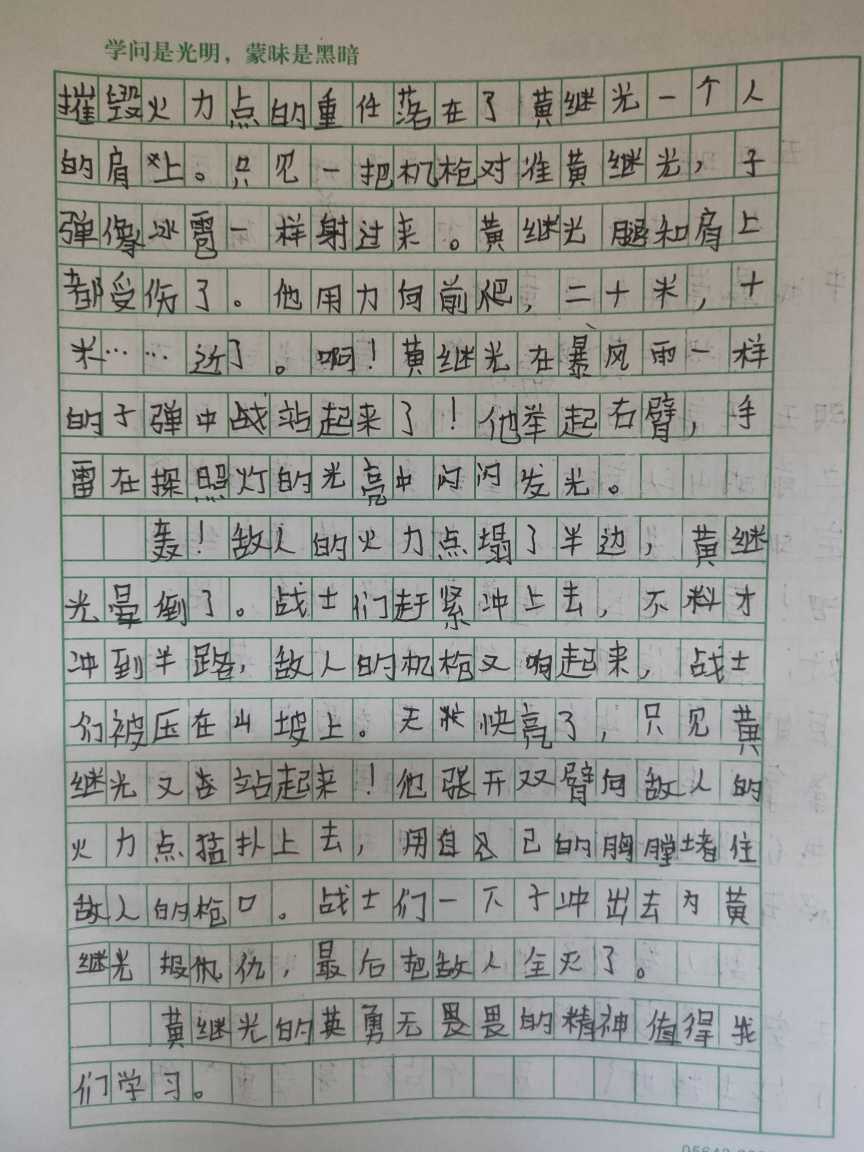 学问是光明，蒙昧是黑暗
摧毁火力点的重任落在了黄继光一个人
的肩上。只见一把机枪对准黄继光，子
弹像冰雹一样射过来。黄继光腿和肩上
都受伤了。他用力向前爬，二十米，十
米……近了。啊！黄继光在暴风雨一样
的子弹中战站起来了！他举起右臂，手
雷在探照灯的光亮中闪闪发光。
轰！敌人的火力点塌了半边，黄继
光晕倒了。战士们赶紧冲上去，不料才
冲到半路，敌人的机枪又响起来，战士
们被压在山坡上。天快亮了，只见黄
继光又站起来！他张开双臂向敌人的
火力点猛扑上去，用自己的胸膛堵住
敌人的枪口。战士们一下子冲出去为黄
继光报仇，最后把敌人全灭了。
黄继光的英勇无畏畏的精神值得我
们学习。